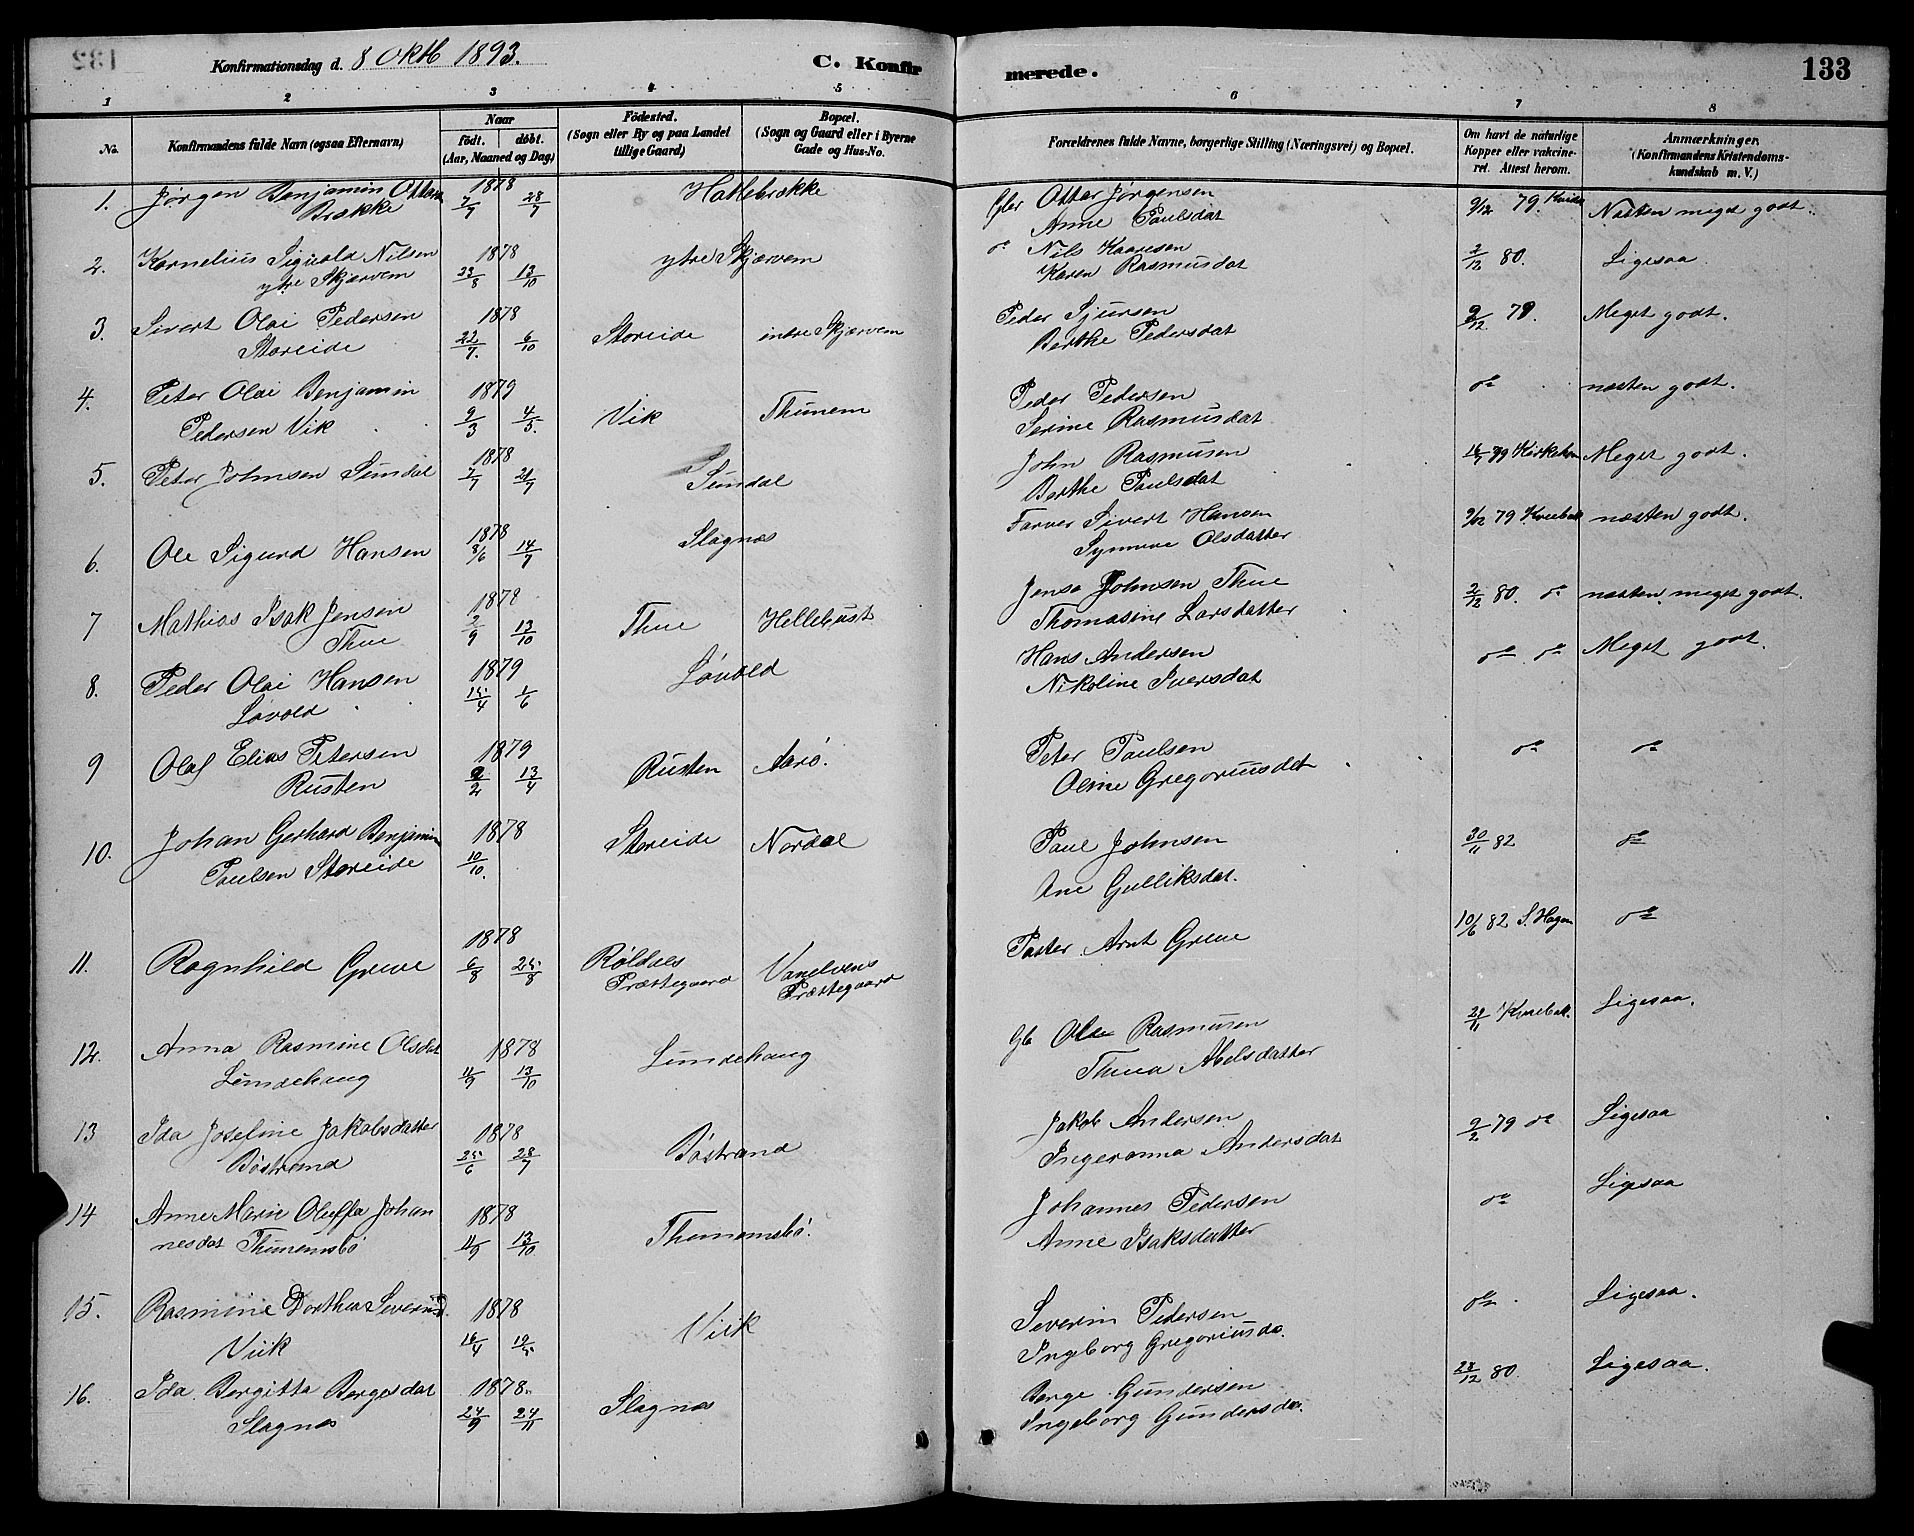 Konfirmationsdag d. 8 Oktb 1893.
C. Konfirmerede.
133
1 2 3 4 5 6 7 8
No.
Konfirmandens fulde Navn (ogsaa Efternavn)
Naar
födt. döbt.
(Aar, Maaned og Dag)
Födested.
(Sogn eller By og paa Landet
tillige Gaard)
Bopæl.
(Sogn og Gaard eller i Byerne
Gade og Hus-No.
Forældrenes fulde Navne, borgerlige Stilling (Næringsvei) og Bopæl.
Om havt de naturlige
Kopper eller vakcine-
ret. Attest herom.
Anmærkninger.
(Konfirmandens Kristendoms-
kundskab m. V.)
1. Jørgen Benjamin Ottersen 1878 Hatlebrække Gbr Otter Jørgensen 9/12 79. Næsten meget godt.
Brække 7/7 28/7 Anne Paulsdat
2. Kornelius Sigvald Nilsen 1878 ytre Skjærvem do Nils Kaaresen 2/12 80. Ligesaa.
ytre Skjærvem 23/8 13/10 Karen Rasmusdat
3. Sivert Olai Pedersen 1878 Storeide indre Skjærvem Peder Sjursen 9/12 79. Meget godt.
Storeide 22/7. 6/10 Berthe Pedersdat
4. Peter Olai Benjamin 1879 Vik Thunem Peder Pedersen do næsten godt.
Pedersen Vik 9/3 4/5. Serine Rasmusdat
5. Peter Johnsen Sundal 1878 Sundal John Rasmusen 16/7 79 Meget godt.
7/7 21/7 Berthe Paulsdat
6. Ole Sigurd Hansen 1878 Slagnæs Farver Sivert Hansen 9/12 79 næsten godt.
8/6 14/7 Synneve Olsdatter
7 Mathias Isak Jensen 1878 Thue Hellebust Jens Johnsen Thue 2/12 80. do næsten meget godt.
Thue 2/9 13/10 Thomasine Larsdatter
8. Peder Olai Hansen 1879 Løvold Hans Andersen do do Meget godt.
Løvold 15/4 1/6 Nikoline Iversdat
9 Olaf Elias Petersen 1879 Rusten Aarø. Peter Paulsen do do
Rusten 2/2 13/4 Oline Gregoriusdat
10. Johan Gerhard Benjamin 1878 Storeide Nordal Paul Johnsen 30/11 82 do
Paulsen Storeide 10/10. Ane Gulliksdat.
11. Ragnhild Greve 1878 Røldals Vanelvens Pastor Arnt Greve 10/6 82 S. Hagen do
6/8 25/8 Præstegaard Præstegaard
12. Anna Rasmine Olsdat 1878 Lundehaug Gb Ole Rasmusen 29/11 Ligesaa.
Lundehaug 11/9 13/10 Thina Abelsdatter
13 Ida Josefine Jakobsdatter 1878 Bøstrand Jakob Andersen 9/2 79 do Ligesaa
Bøstrand 25/6 28/7 Ingeranna Andersdat
14 Anne Marie Oluffa Johan 1878 Thunemsbø. Johannes Pedersen do Ligesaa
nesdat Thunemsbø 11/9 13/10 Anne Isaksdatter
15. Rasmine Dorthea Severinsd. 1878 Viik Severin Pedersen do Ligesaa.
Viik 16/4 19/5 Ingeborg Gregoriusda.
16. Ida Bergitta Bergesdat 1878. Slagnæs Berge Gundersen 28/12 80. Ligesaa.
Slagnæs 24/9 24/11 Ingeborg Gundersda.